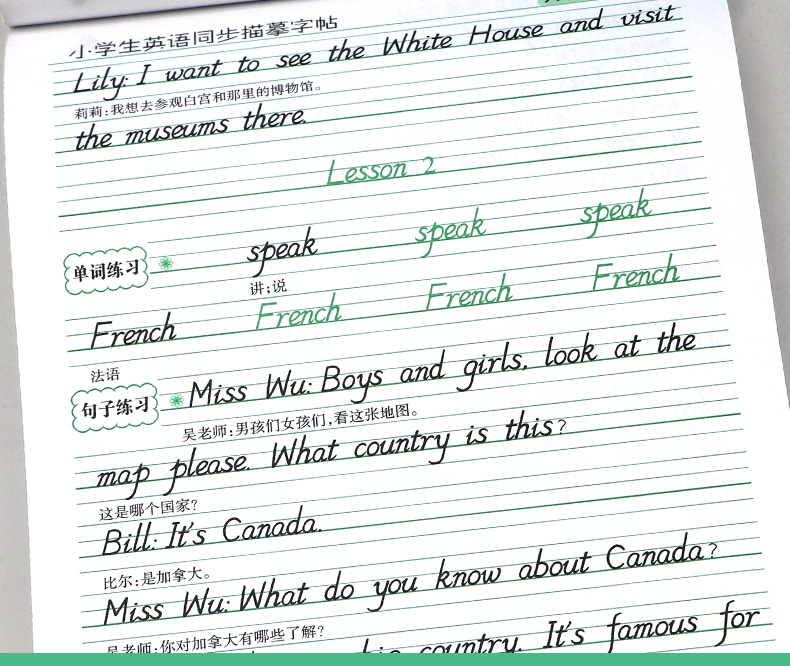 小学生英语同步描摹字帖
Lily: I want to see the White House and visit
莉莉:我想去参观白宫和那里的博物馆。
the museums there.
Lesson 2
单词练习 speak speak speak
讲;说
French French French French
法语
句子练习 Miss Wu: Boys and girls, look at the
吴老师:男孩们女孩们,看这张地图。
map please. What country is this?
这是哪个国家?
Bill: It's Canada.
比尔:是加拿大。
Miss Wu: What do you know about Canada?
吴老师:你对加拿大有哪些了解?
country. It's famous for